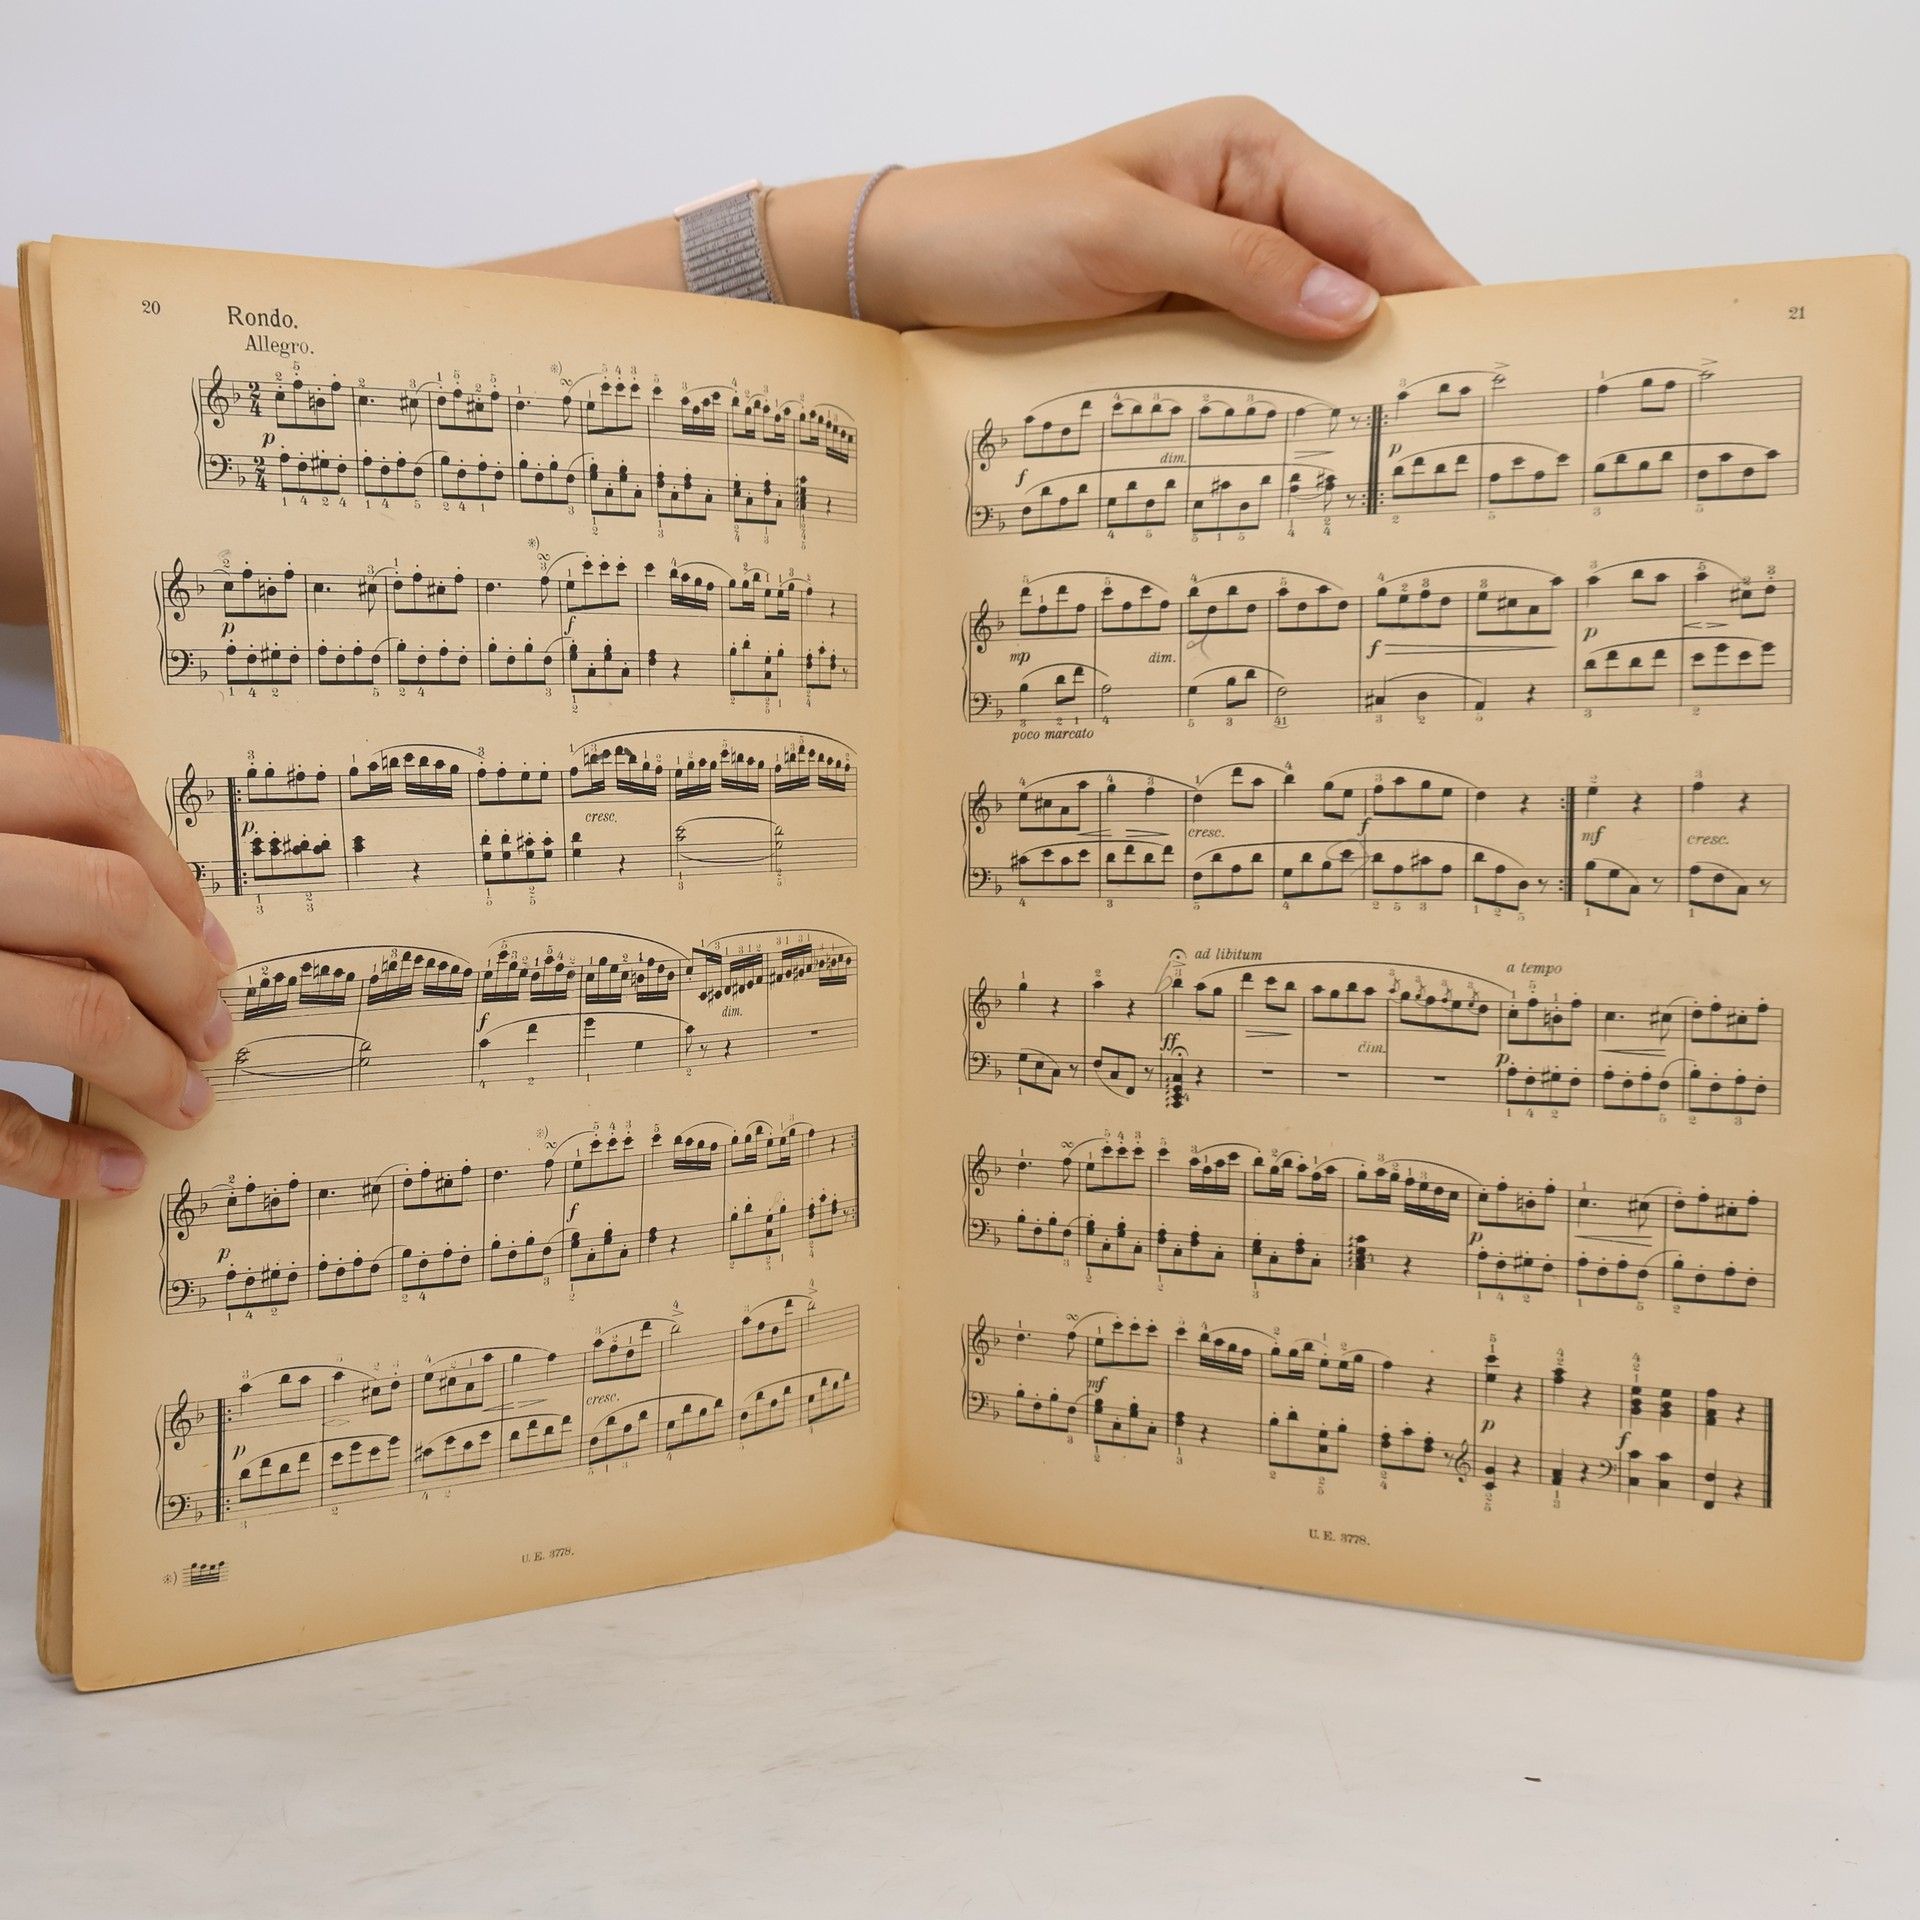 20
Rondo.
Allegro.
p
*)
*)
p
f
p
cresc.
f
dim.
*)
p
f
p
cresc.
*)
U. E. 3778.
21
f
dim.
p
mp
dim.
f
p
poco marcato
cresc.
f
mf
cresc.
ad libitum
a tempo
ff
dim.
p
p
mf
p
f
U. E. 3778.